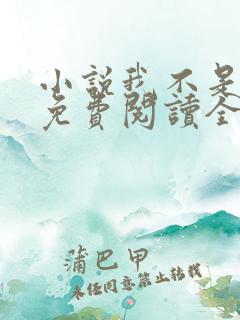 小說我不是
免費閱讀全
蒲巴甲
未经同意禁止转载